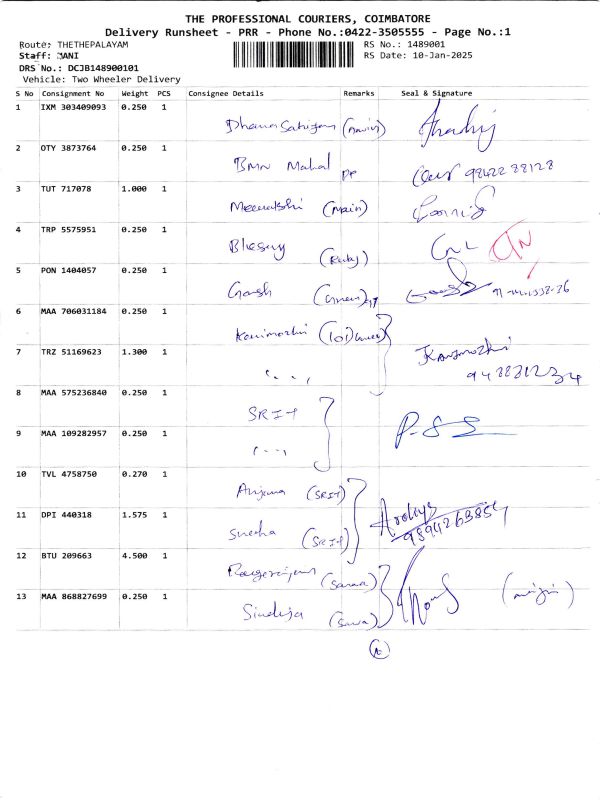 THE PROFESSIONAL COURIERS, COIMBATORE
Delivery Runsheet - PRR - Phone No.:0422-3505555 - Page No.:1
Route: THETHEPALAYAM RS No.: 1489001
Staff: MANI RS Date: 10-Jan-2025
DRS No.: DCJB148900101
Vehicle: Two Wheeler Delivery
S No Consignment No Weight PCS Consignee Details Remarks Seal & Signature
1 IXM 303409093 0.250 1
2 OTY 3873764 0.250 1
BMN Mahal PP 9842288128
3 TUT 717078 1.000 1
Meenakshi (Main)
4 TRP 5575951 0.250 1
Blessy (Ruby)
5 PON 1404057 0.250 1
Gosh
6 MAA 706031184 0.250 1
Kanimozhi (101)
7 TRZ 51169623 1.300 1 Kanimozhi
8 MAA 575236840 0.250 1
SRIT
9 MAA 109282957 0.250 1
10 TVL 4758750 0.270 1
Anjana (SRIT)
11 DPI 440318 1.575 1
Sneha (SRIT) 9894263854
12 BTU 209663 4.500 1
13 MAA 868827699 0.250 1